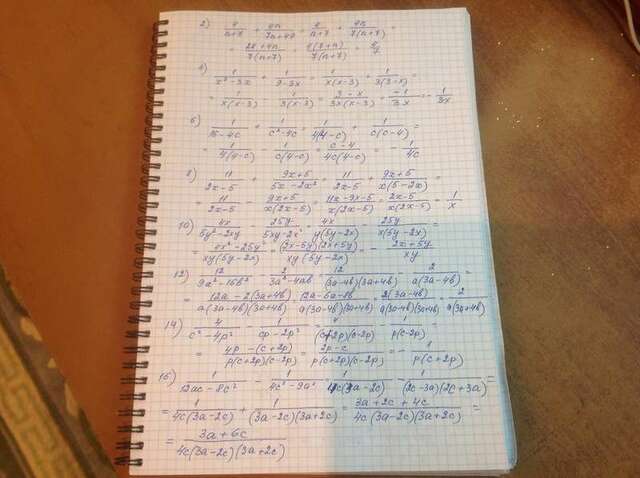 2) 4/(n+7) + 4n/(7n+49) = 4/(n+7) + 4n/(7(n+7)) =
(28+4n)/(7(n+7)) = 4(7+n)/(7(n+7)) = 4/7
4) 1/(x²-3x) + 1/(9-3x) = 1/(x(x-3)) + 1/(3(3-x)) =
= 1/(x(x-3)) - 1/(3(x-3)) = (3-x)/(3x(x-3)) = -1/(3x) = -1/(3x)
6) 1/(16-4c) + 1/(c²-4c) = 1/(4(4-c)) + 1/(c(c-4)) =
= 1/(4(4-c)) - 1/(c(4-c)) = (c-4)/(4c(4-c)) = -1/(4c)
8) 11/(2x-5) + (9x+5)/(5x-2x²) = 11/(2x-5) + (9x+5)/(x(5-2x)) =
= 11/(2x-5) - (9x+5)/(x(2x-5)) = (11x-9x-5)/(x(2x-5)) = (2x-5)/(x(2x-5)) = 1/x
10) 4x/(5y²-2xy) - 25y/(5xy-2x²) = 4x/(y(5y-2x)) - 25y/(x(5y-2x)) =
= (4x²-25y²)/(xy(5y-2x)) = (2x-5y)(2x+5y)/(xy(5y-2x)) = -(2x+5y)/(xy)
12) 12/(9a²-16b²) - 2/(3a²-4ab) = 12/((3a-4b)(3a+4b)) - 2/(a(3a-4b)) =
= (12a-2(3a+4b))/(a(3a-4b)(3a+4b)) = (12a-6a-8b)/(a(3a-4b)(3a+4b)) = 2(3a-4b)/(a(3a-4b)(3a+4b)) = 2/(a(3a+4b))
14) 4/(c²-4p²) - 1/(cp-2p²) = 4/((c+2p)(c-2p)) - 1/(p(c-2p)) =
= (4p-(c+2p))/(p(c+2p)(c-2p)) = (2p-c)/(p(c+2p)(c-2p)) = -1/(p(c+2p))
16) 1/(12ac-8c²) - 1/(4c²-9a²) = 1/(4c(3a-2c)) - 1/((2c-3a)(2c+3a)) =
= 1/(4c(3a-2c)) + 1/((3a-2c)(3a+2c)) = (3a+2c+4c)/(4c(3a-2c)(3a+2c)) =
= (3a+6c)/(4c(3a-2c)(3a+2c))